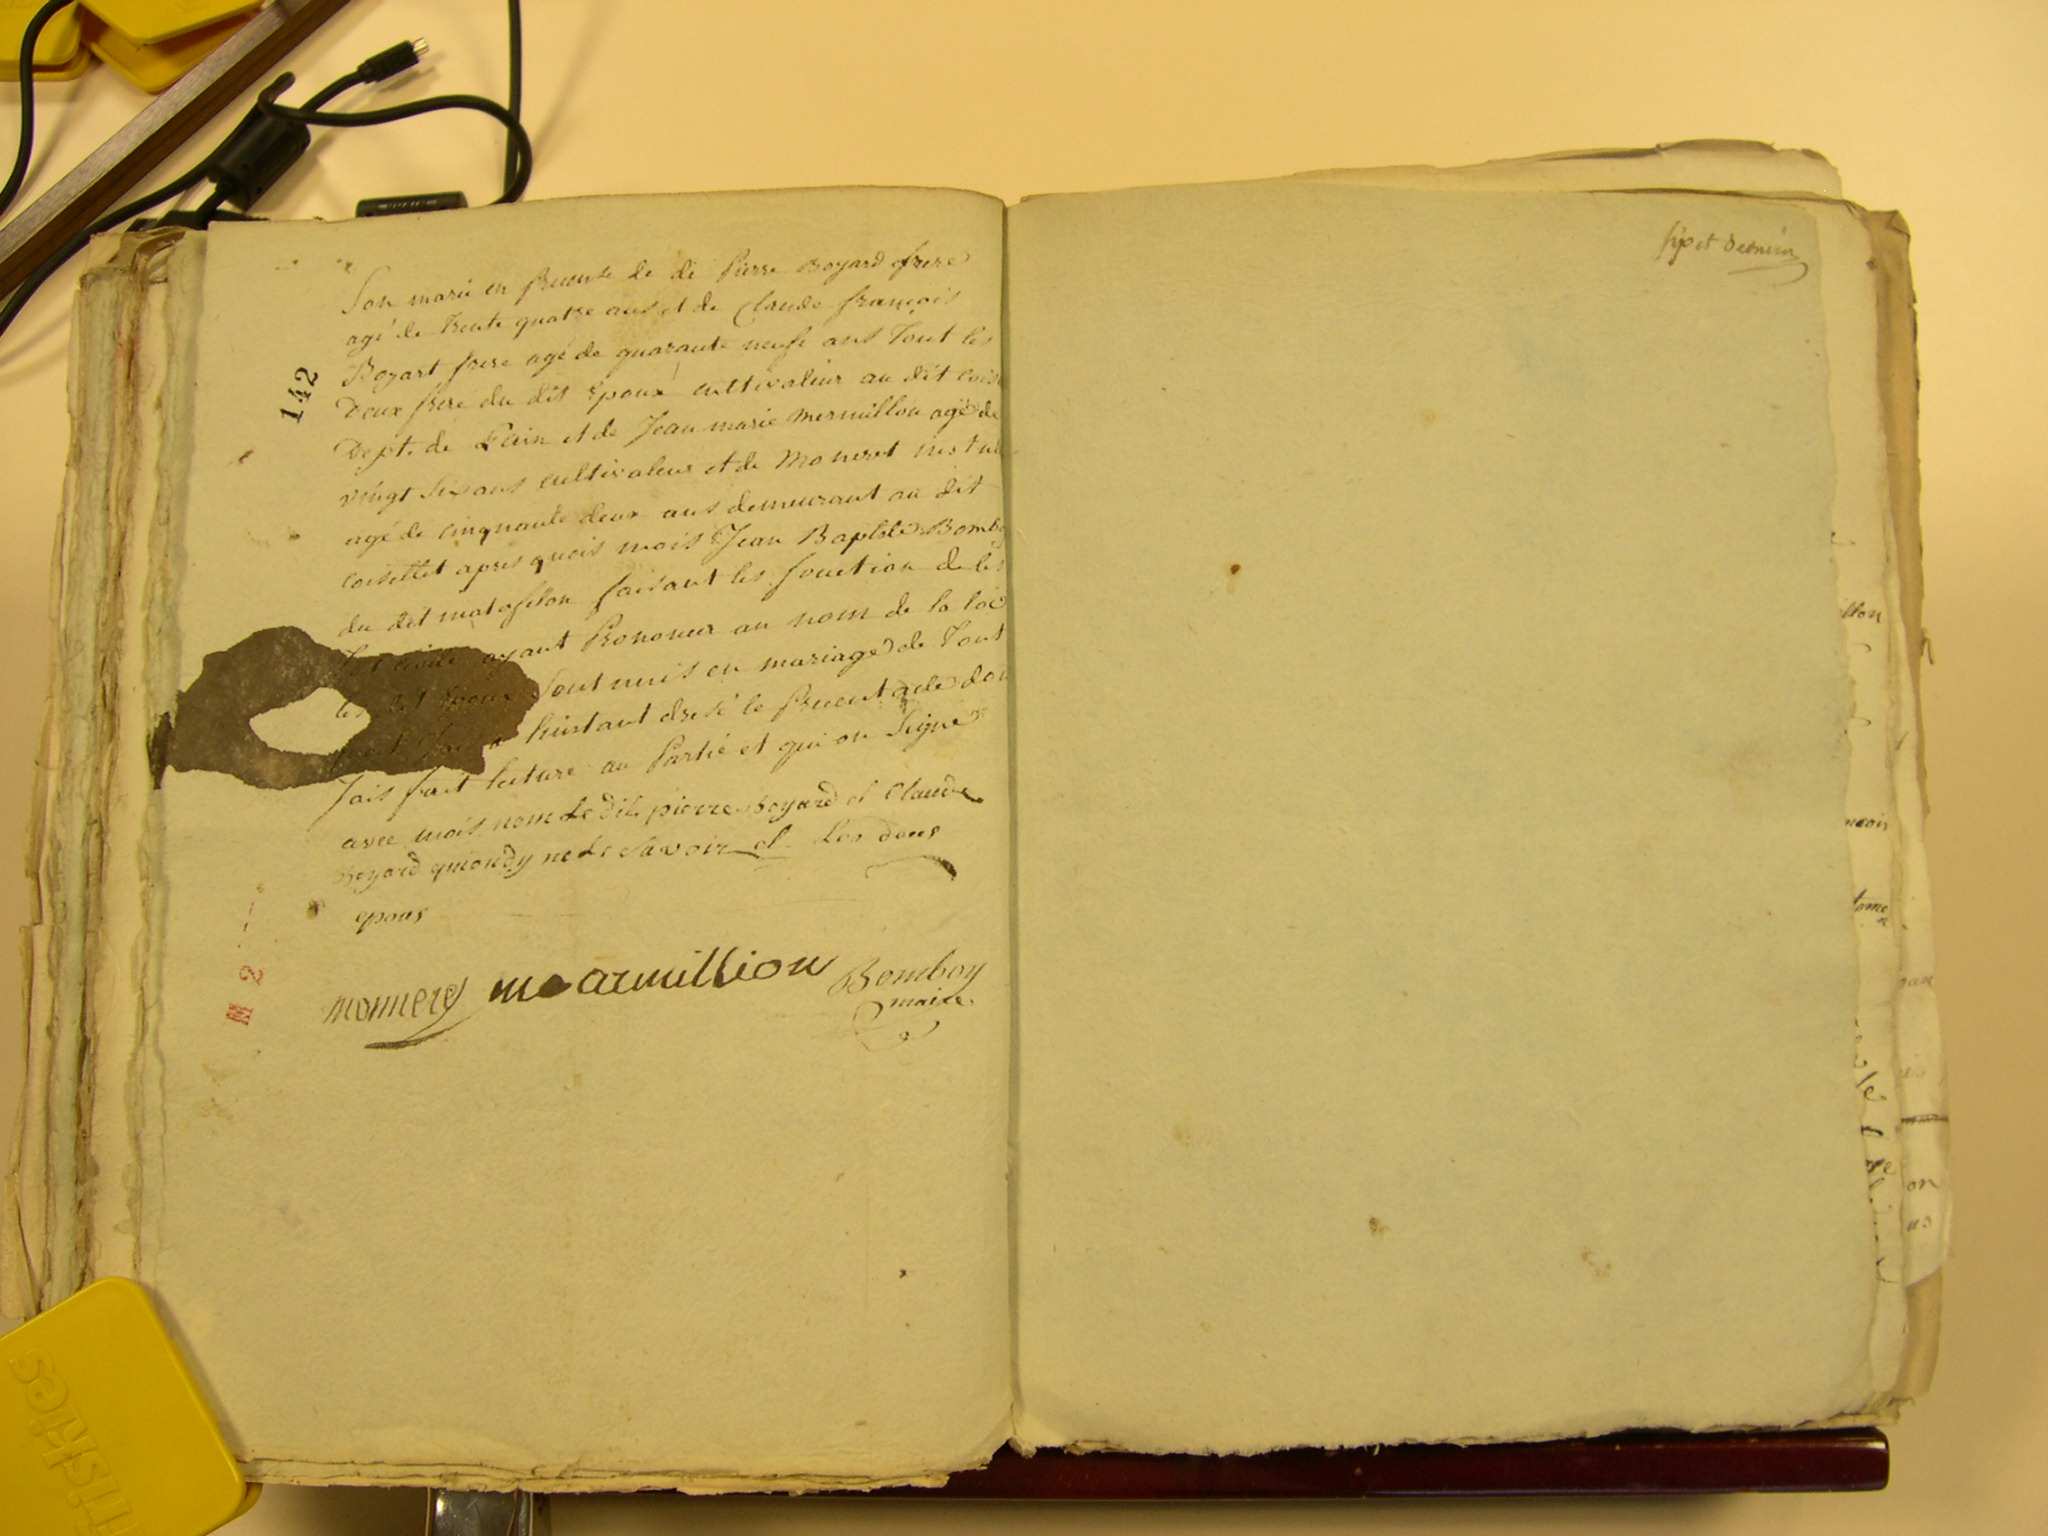 Son marié en presente de di Pierre Boyard frere
agé de trente quatre ans et de Claude françois
Boyart frere agé de quarante neufe ans tout les
Deux frere du dit Epoux cultivateur au dit cois
Dept. de Lain et de Jean marie mermillon agé de
vingt six ans cultivateur et de Moneret
agé de cinquante deux ans demeurant au dit
Coisettet apres quois mois Jean Baptste Bombo
du dit matafelon faisant les fonction de les
ayant Prononcer au nom de la loi
les dit Epoux Sont unis en mariage de tout
hinstant dresé le Present acte don
Jais fait lecture au Partie et qui on Signé
avec mois nom Le Dit pierre boyard et Claude
Boyard qui on dy ne Le Savoir et Les deus
epous
monnerey mearmillion Bomboy
maire
142
M 2
sixet dernier
llon
on